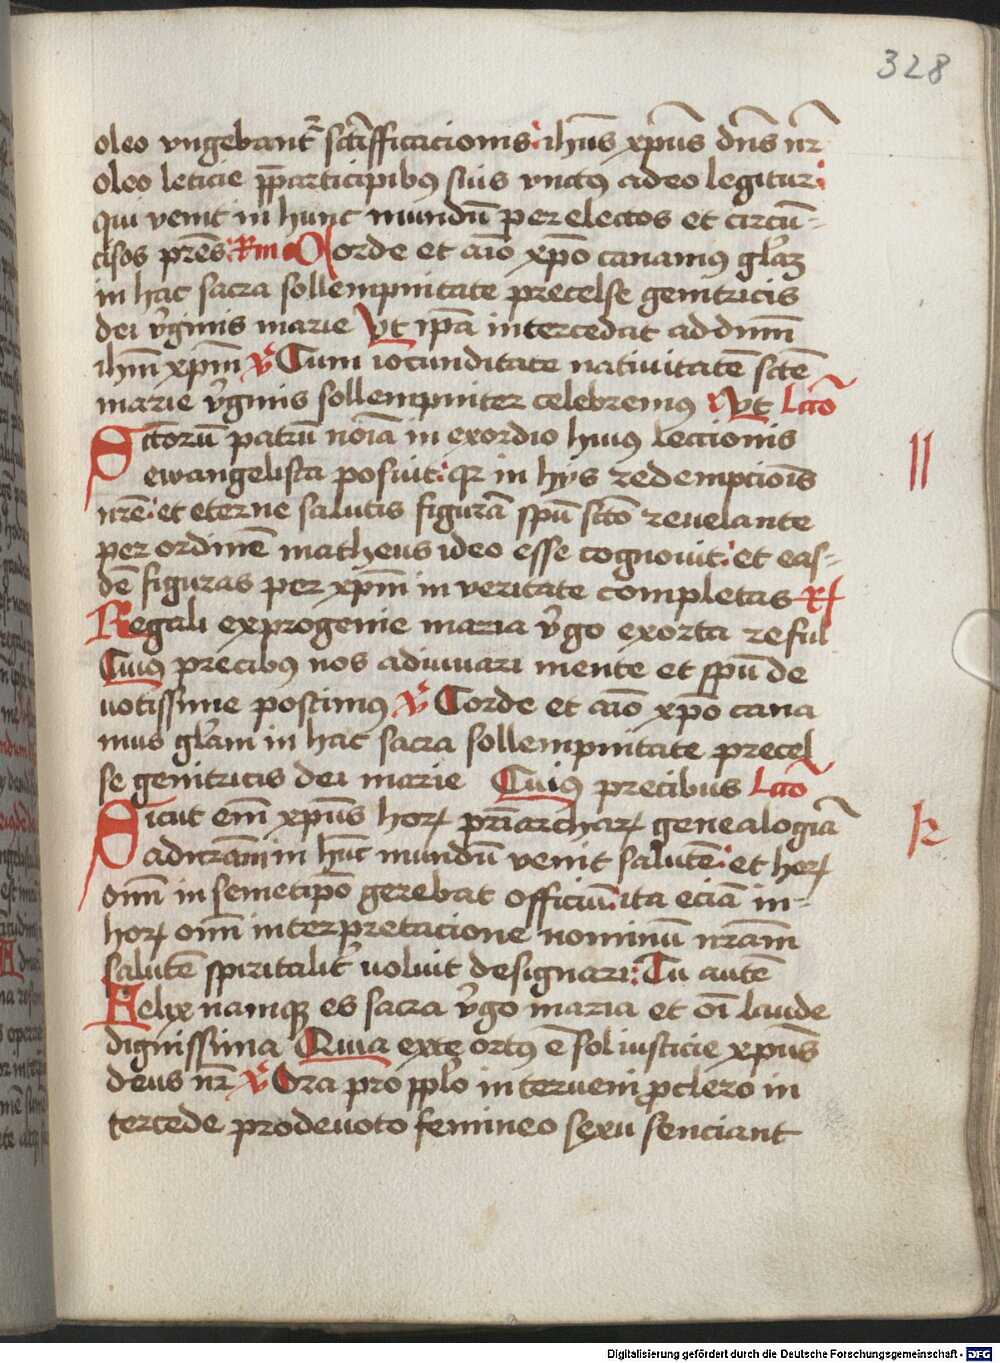 328
oleo vngebant᷑ sct̄ifficacionis: ihūs xp̄us dn̄s nr̄
oleo leticie p̄particibus suis vnctꝰ adeo legitur:
qui venit in hunc mundū per electos et circū-
cisos pr̄es: Rm̄ Corde et aīo xp̄o canamꝰ gl̄aꝫ
in hac sacra sollempnitate precelse genitricis
dei v̓ginis marie Vt ip̄a intercedat ad dn̄m
ihm̄ xp̄m ℣ Cum iocunditate natiuitatē sctē
marie v̓ginis sollempniter celebremꝰ Vt Lcō
Sctorū patrū noīa in exordio huiꝰ leccionis
ewangelista posuit: qꝛ in hys redempciōis
nrē: et eterne salutis figurā spū sctō reuelante
per ordinē matheus ideo esse cognouit: et eas-
dē figuras per xp̄m in veritate completas R̸
Regali ex progenie maria v̓go exorta reful
Cuiꝰ precibꝰ nos adiuuari mente et spū de
uotissime poscimꝰ ℣ Corde et aīo xp̄o cana
mus gl̄am in hac sacra sollempnitate precel
se genitricis dei marie Cuiꝰ precibus Lcō
Sicut em̄ xp̄us horꝝ pr̄iarcharꝝ genealogiā
ad nr̄am in hūc mundū venit salutē: et horꝝ
om̄ in semetip̄o gerebat officiū: ita eciā in-
horꝝ om̄ interpretacione nominū nr̄am
salutē spiritalit̓ uoluit designari: Tu autē
Felix namqꝫ es sacra v̓go maria et oī laude
dignissima Quia ex te ortꝰ ē sol iusticie xp̄us
deus nr̄ ℣ Ora pro pplo interueni ꝓ clero in
tercede pro deuoto femineo sexu senciant
ll
k
Digitalisierung gefördert durch die Deutsche Forschungsgemeinschaft - DFG